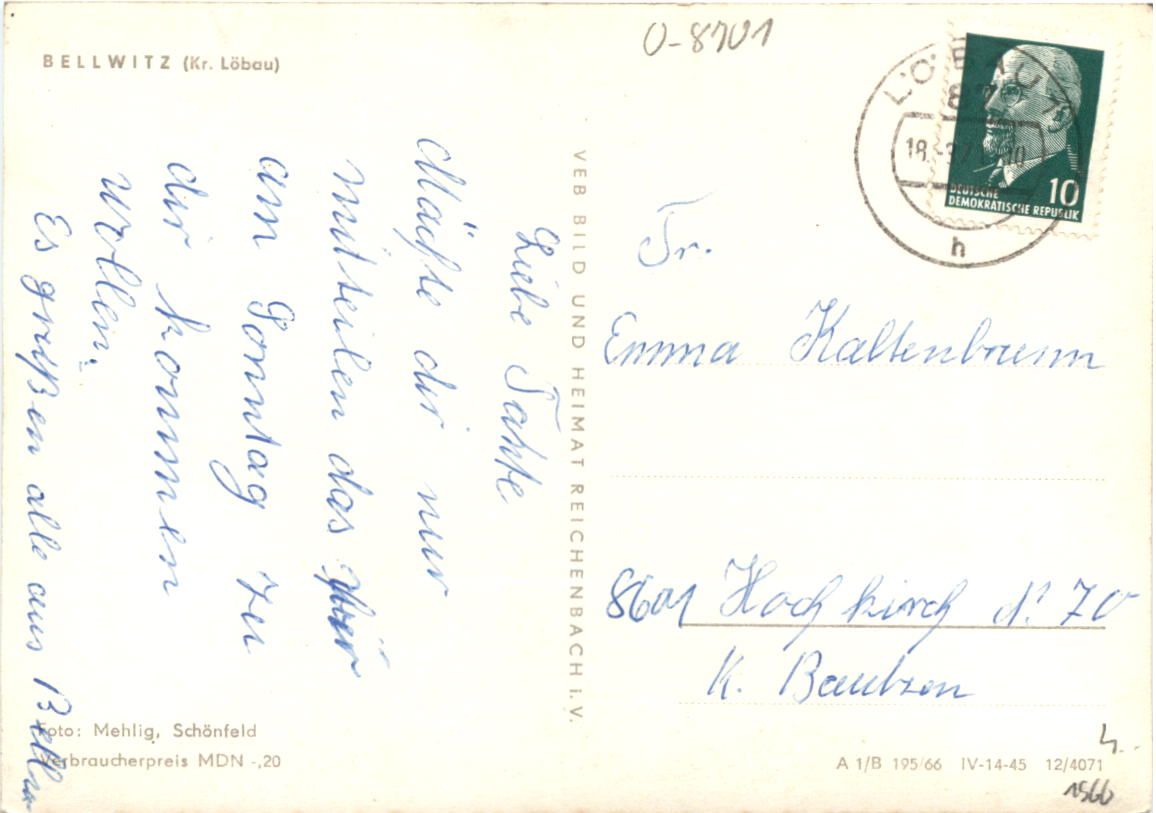 BELLWITZ (Kr. Löbau)
O-8701
LÖBAU
18.
h
10
DEUTSCHE
DEMOKRATISCHE REPUBLIK
Liebe Tante
Möchte dir nur
mitteilen das wir
am Sonntag zu
dir kommen
wollen.
Es grüßen alle aus
VEB BILD UND HEIMAT REICHENBACH i. V.
Fr.
Emma Kaltenbrunn
8601 Hochkirch N. 70
K. Bautzen
Foto: Mehlig, Schönfeld
Verbraucherpreis MDN -,20
A 1/B 195/66 IV-14-45 12/4071
1966